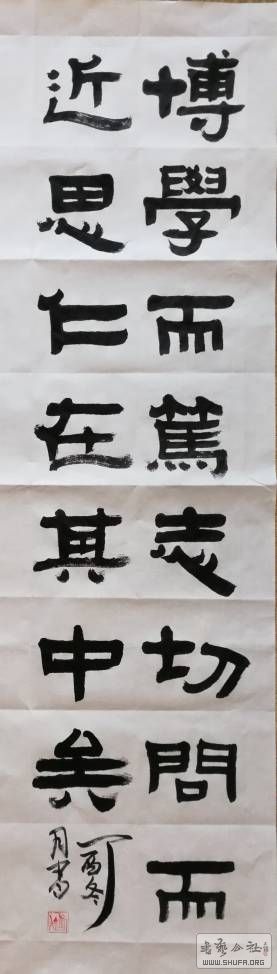 博學而篤志切問而
近思仁在其中矣
丁酉冬
月書
WWW.SHUFA.ORG